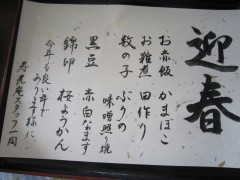 迎春
お赤飯 かまぼこ
お雑煮 田作り
数の子 ぶりの
味噌照り焼
黒豆 赤白なます
錦卵 桜ようかん
今年も良い年で
あります様に
スタッフ一同